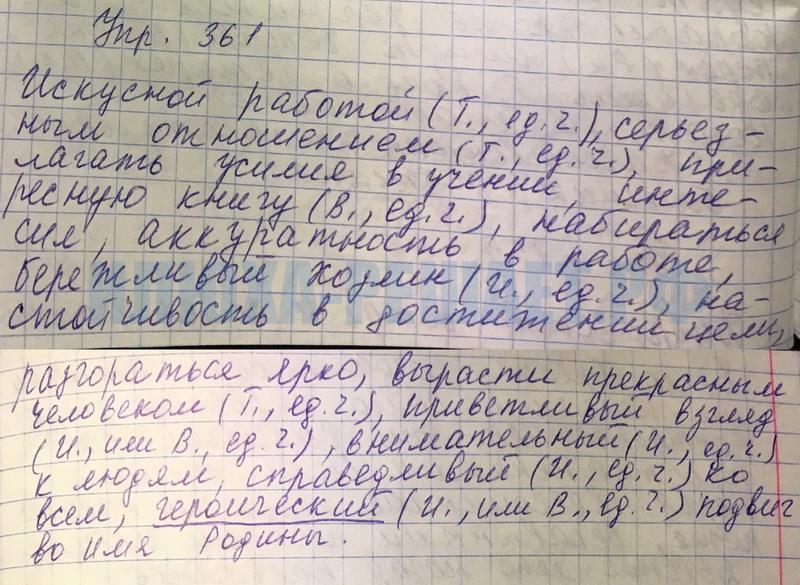 Упр. 361
Искусной работой (Т., ед.ч.), серьез-
ным отношением (Т., ед.ч.), при-
лагать усилия в учении, инте-
ресную книгу (В., ед.ч.), набираться
сил, аккуратность в работе,
бережливый хозяин (И., ед.ч.), на-
стойчивость в достижении цели,
разгораться ярко, вырасти прекрасным
человеком (Т., ед.ч.), приветливый взгляд
(И., или В., ед.ч.), внимательный (И., ед.ч.)
к людям, справедливый (И., ед.ч.) ко
всем, героический (И., или В., ед.ч.) подвиг
во имя Родины.